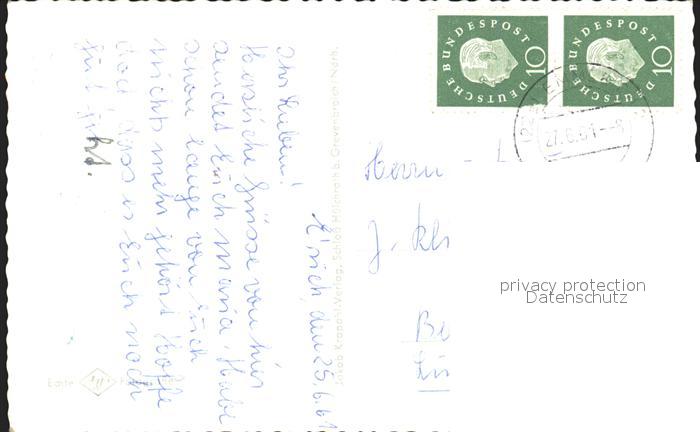 E'rich, den 25.6.61
Ihr Lieben!
Herzliche Grüsse von hier
sendet Euch Maria. Habe
schon lange von Euch
nichts mehr gehört Hoffe
doch dass es Euch noch
gut geht.
Jakob Krapohl-Verlag, Schloß Hülchrath b. Grevenbroich Ndrh.
Echte
DEUTSCHE BUNDESPOST
10
DEUTSCHE BUNDESPOST
10
27.6.61--8
Herrn
J. Kl
Be
privacy protection
Datenschutz